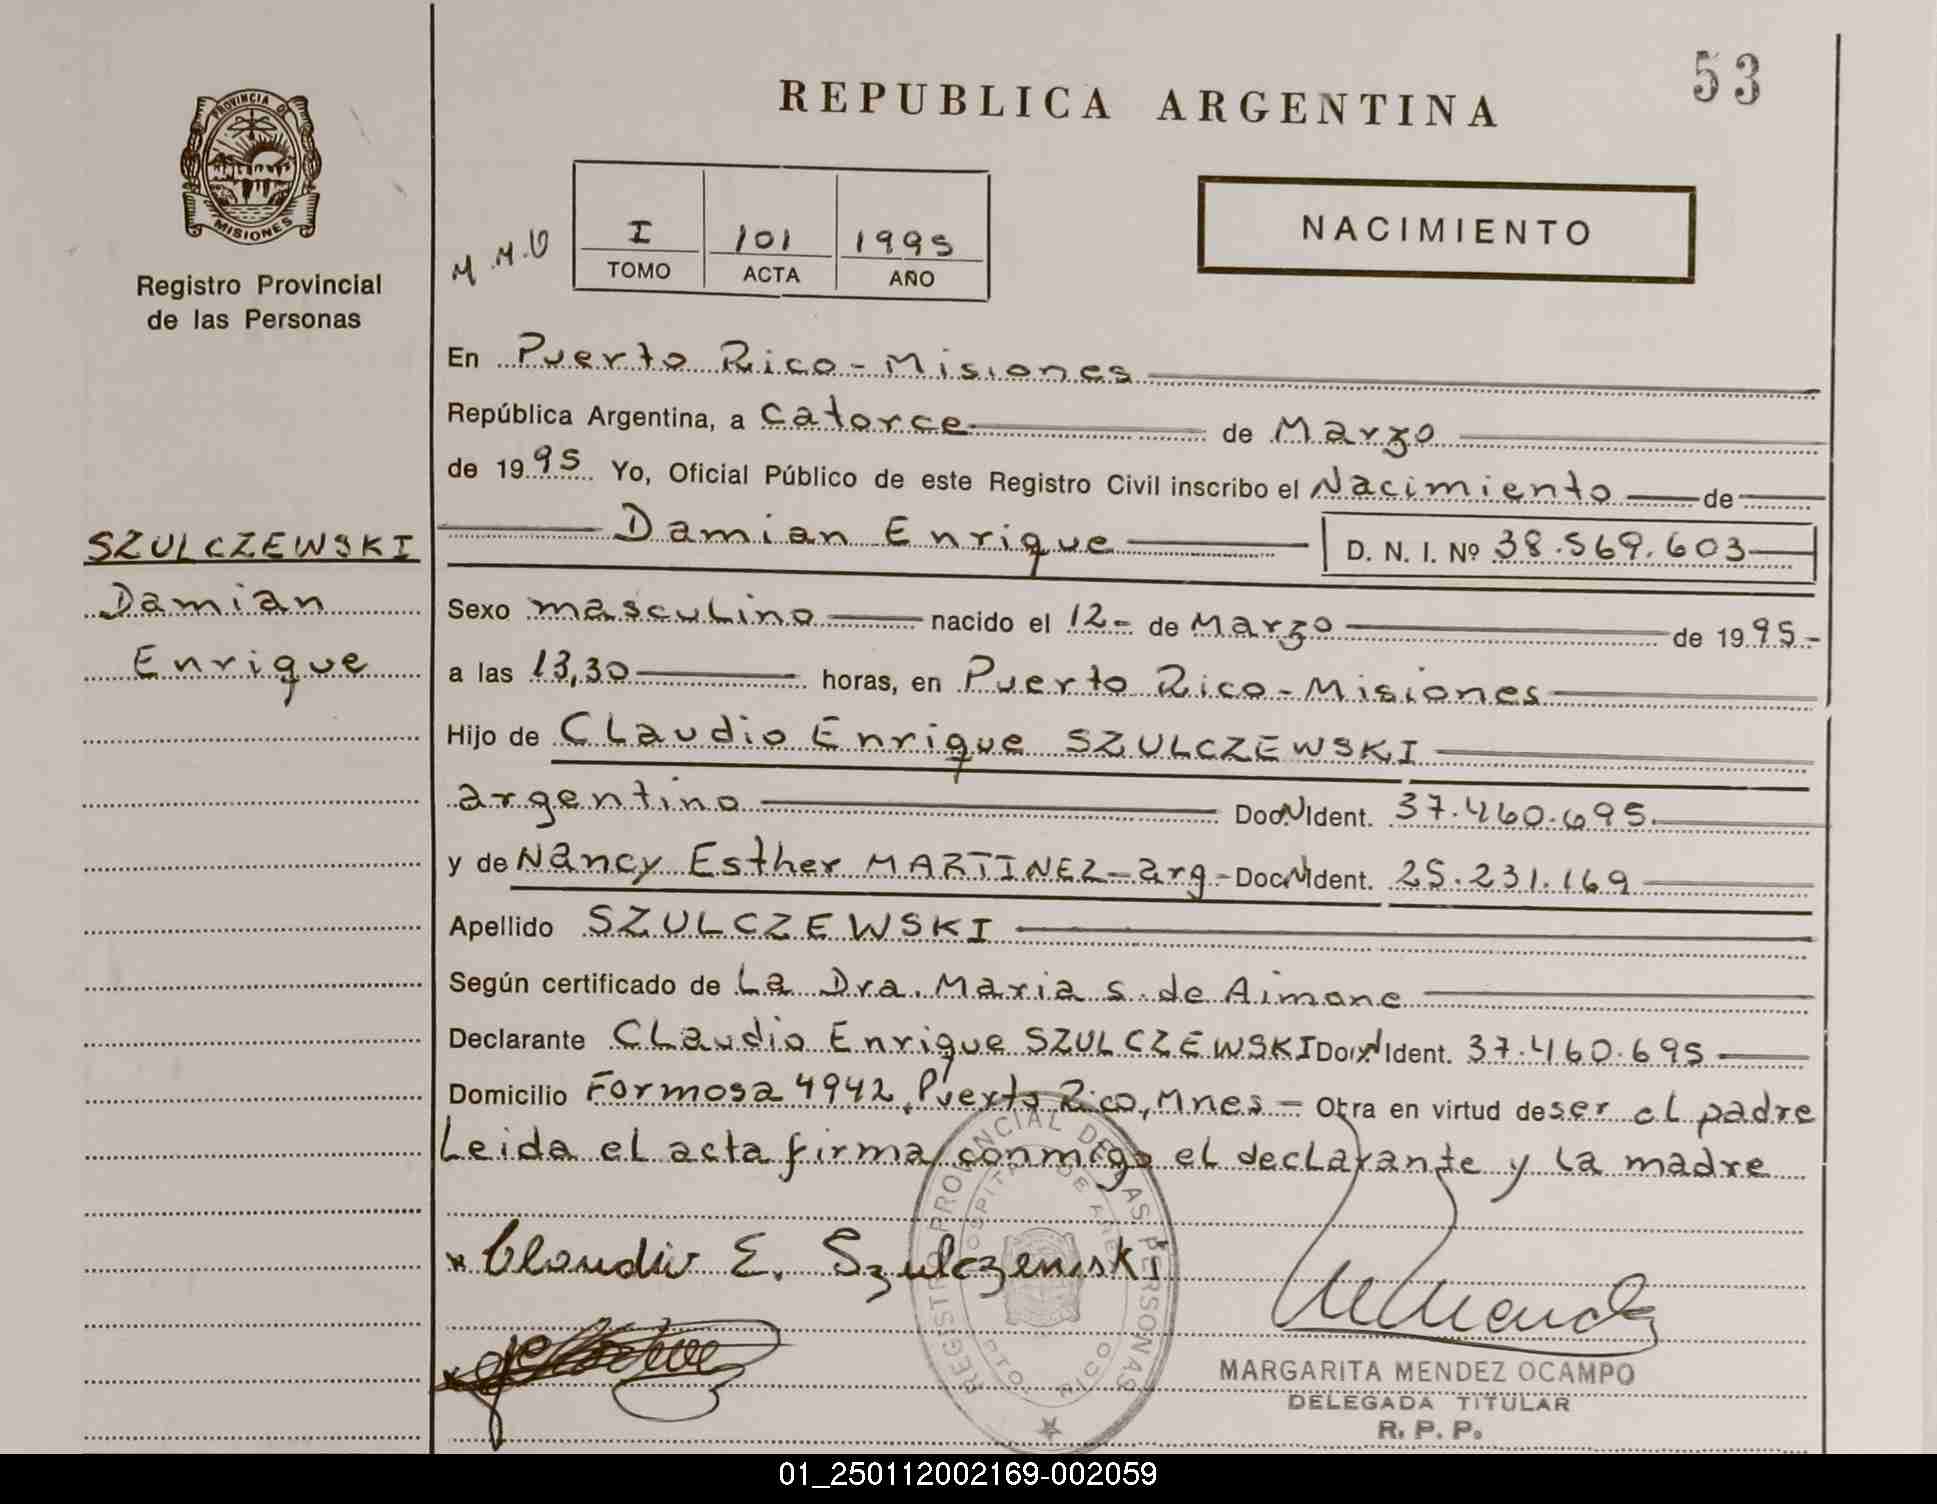 53
REPUBLICA ARGENTINA
PROVINCIA DE
MISIONES
Registro Provincial
de las Personas
M.M.O
I 101 1995
TOMO ACTA AÑO
NACIMIENTO
En Puerto Rico - Misiones
República Argentina, a catorce de Marzo
de 1995 Yo, Oficial Público de este Registro Civil inscribo el Nacimiento de
Damian Enrique D. N. I. Nº 38.569.603
SZULCZEWSKI
Damian
Enrique
Sexo masculino nacido el 12- de Marzo de 1995.-
a las 13,30 horas, en Puerto Rico - Misiones
Hijo de Claudio Enrique SZULCZEWSKI
argentino Doc. N Ident. 37.460.695.
y de Nancy Esther MARTINEZ - arg - Doc. N Ident. 25.231.169
Apellido SZULCZEWSKI
Según certificado de La Dra. Maria S. de Aimone
Declarante Claudio Enrique SZULCZEWSKI Doc. N Ident. 37.460.695
Domicilio Formosa 4942, Puerto Rico, Mnes - Obra en virtud de ser el padre
Leida el acta firma conmigo el declarante y la madre
x Claudio E. Szulczewski
REGISTRO PROVINCIAL DE LAS PERSONAS
MARGARITA MENDEZ OCAMPO
DELEGADA TITULAR
R. P. P.
01_250112002169-002059